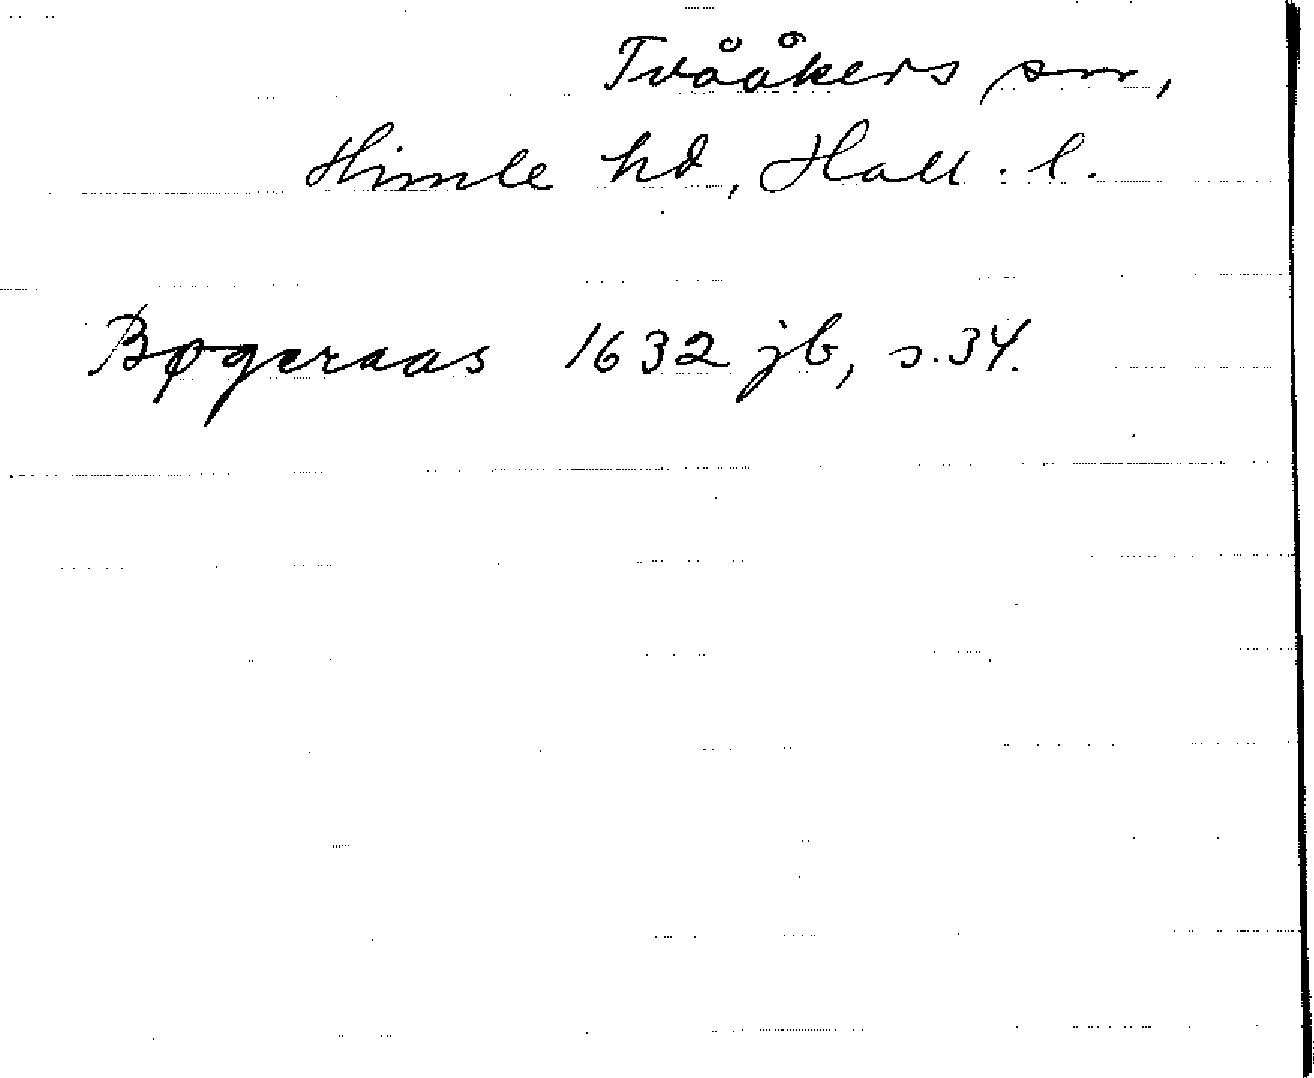 Tvååkers sn,
Himle hd, Hall. l.
Bøgeraas 1632 jb, s. 34.